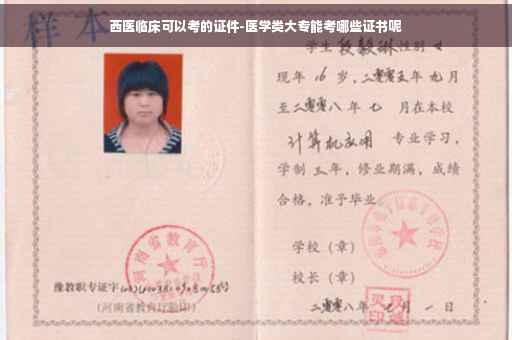 西医临床可以考的证件-医学类大专能考哪些证书呢
样本
学生段毅琳性别女
现年16岁，二零零五年九月
至二零零八年七月在本校
计算机应用 专业学习，
学制三年，修业期满，成绩
合格，准予毕业。
学校（章）
校长（章）
二零零八年七月一日
河南省教育厅
豫教职专证字
（河南省教育厅验印）